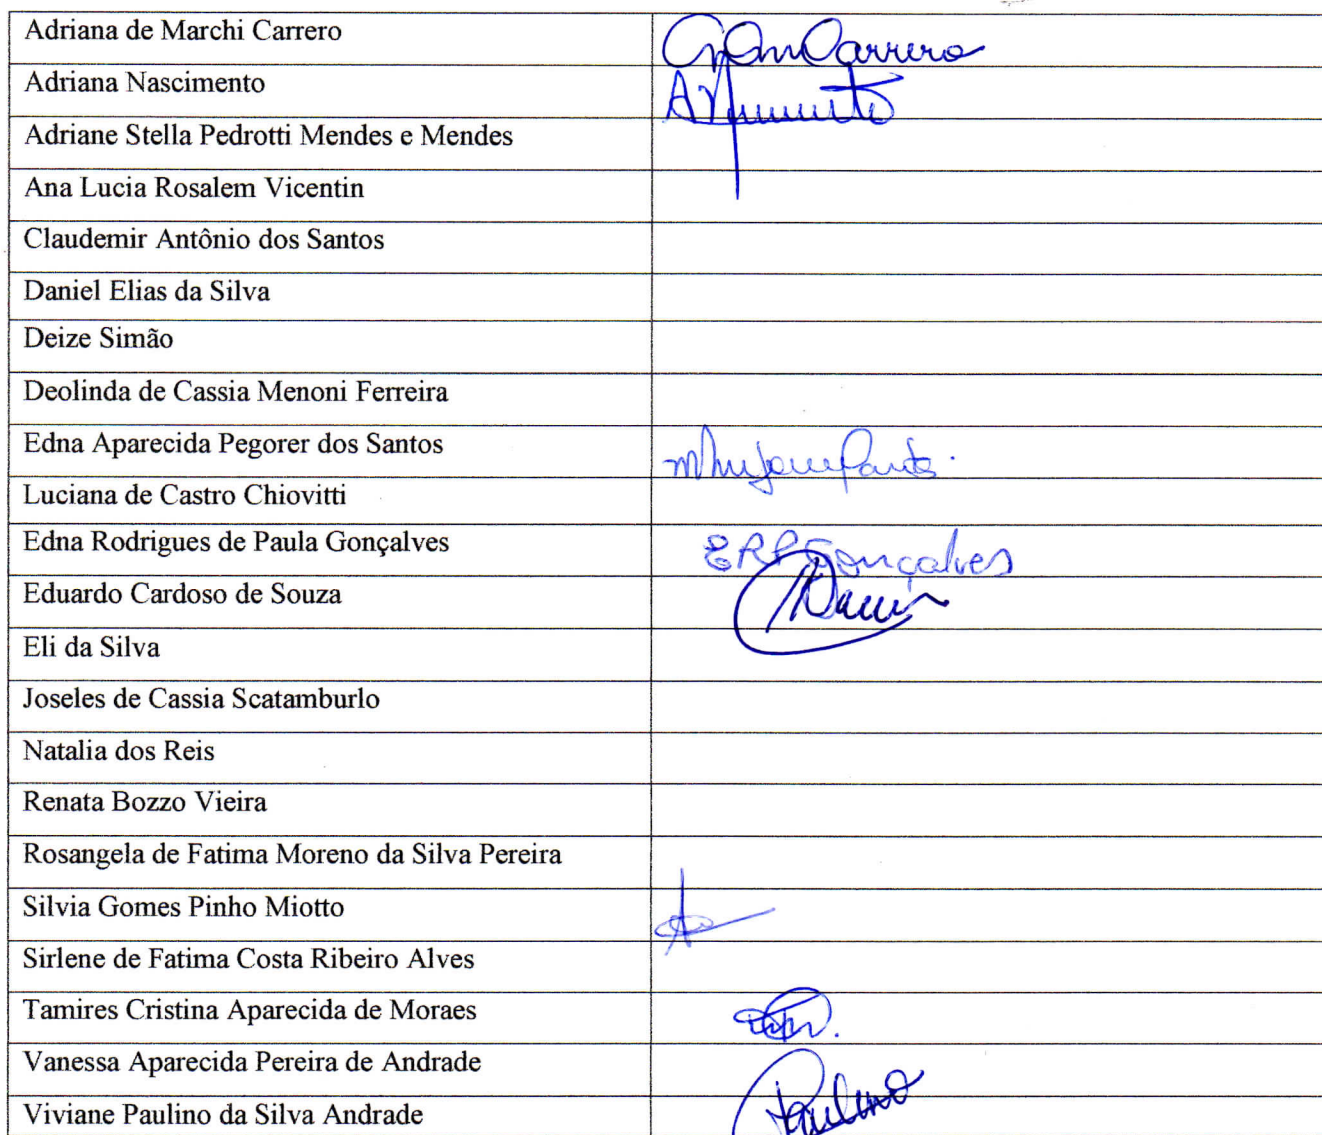 Adriana de Marchi Carrero
Carrero
Adriana Nascimento
Adriane Stella Pedrotti Mendes e Mendes
Ana Lucia Rosalem Vicentin
Claudemir Antônio dos Santos
Daniel Elias da Silva
Deize Simão
Deolinda de Cassia Menoni Ferreira
Edna Aparecida Pegorer dos Santos
Luciana de Castro Chiovitti
Edna Rodrigues de Paula Gonçalves
ERPGonçalves
Eduardo Cardoso de Souza
Eli da Silva
Joseles de Cassia Scatamburlo
Natalia dos Reis
Renata Bozzo Vieira
Rosangela de Fatima Moreno da Silva Pereira
Silvia Gomes Pinho Miotto
Sirlene de Fatima Costa Ribeiro Alves
Tamires Cristina Aparecida de Moraes
Vanessa Aparecida Pereira de Andrade
Viviane Paulino da Silva Andrade
Paulino